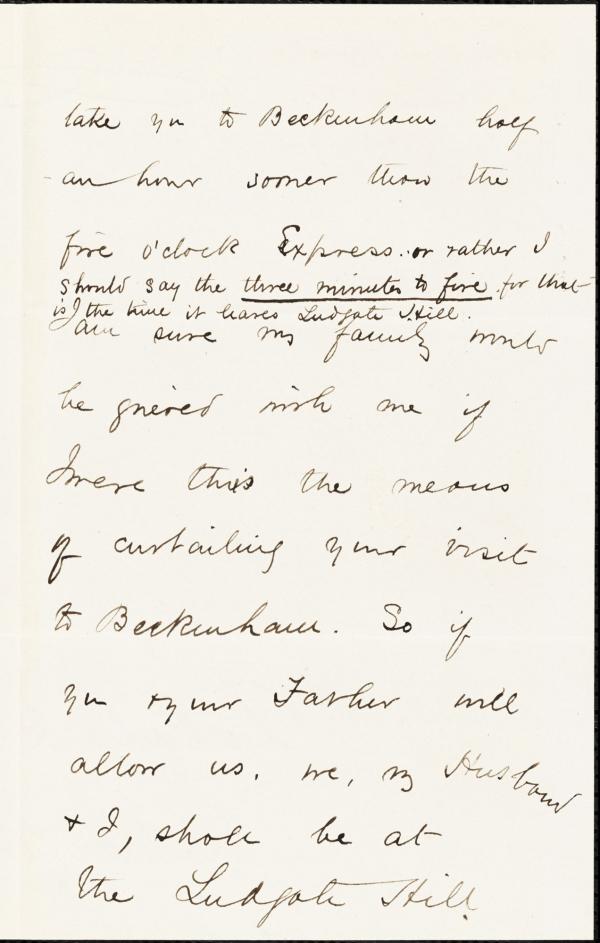 take you to Beckenham half
an hour sooner than the
five o'clock Express. or rather I
should say the three minutes to five for that
is the time it leaves Ludgate Hill.
I am sure my family would
be grieved with me if
I were this the means
of curtailing your visit
to Beckenham. So if
you & your Father will
allow us. we, my Husband
& I, shall be at
the Ludgate Hill